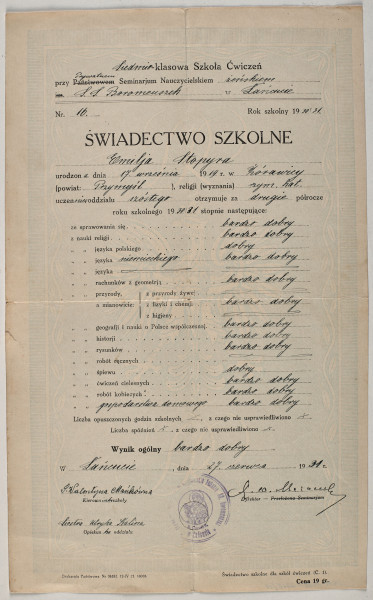 Siedmio-klasowa Szkoła Ćwiczeń
przy Prywatnem Państwowem Seminarjum Nauczycielskiem żeńskiem
S.S. Boromeuszek w Łańcucie
Nr. 16. Rok szkolny 1930/31
ŚWIADECTWO SZKOLNE
Emilja Stopyra
urodzona dnia 17 września 19 r. w Żórawicy
(powiat: Przemyśl), religji (wyznania) rzym. kat.
uczeń oddziału szóstego otrzymuje za drugie półrocze
roku szkolnego 1930/31 stopnie następujące:
ze sprawowania się bardzo dobry
z nauki religji bardzo dobry
„ języka polskiego dobry
„ języka niemieckiego bardzo dobry
„ języka
„ rachunków z geometrją bardzo dobry
„ przyrody, a mianowicie: z przyrody żywej z fizyki i chemji z higjeny bardzo dobry
„ geografji i nauki o Polsce współczesnej bardzo dobry
„ historji bardzo dobry
„ rysunków bardzo dobry
„ robót ręcznych
„ śpiewu dobry
„ ćwiczeń cielesnych bardzo dobry
„ robót kobiecych bardzo dobry
„ gospodarstwa domowego bardzo dobry
Liczba opuszczonych godzin szkolnych , z czego nie usprawiedliwiono
Liczba spóźnień , z czego nie usprawiedliwiono
Wynik ogólny bardzo dobry
W Łańcucie, dnia 27 czerwca 1931 r.
Kierownik szkoły
Dyrektor Państwowe Seminarjum
Opiekun oddziału
Świadectwo szkolne dla szkół ćwiczeń
Cena 19 gr.